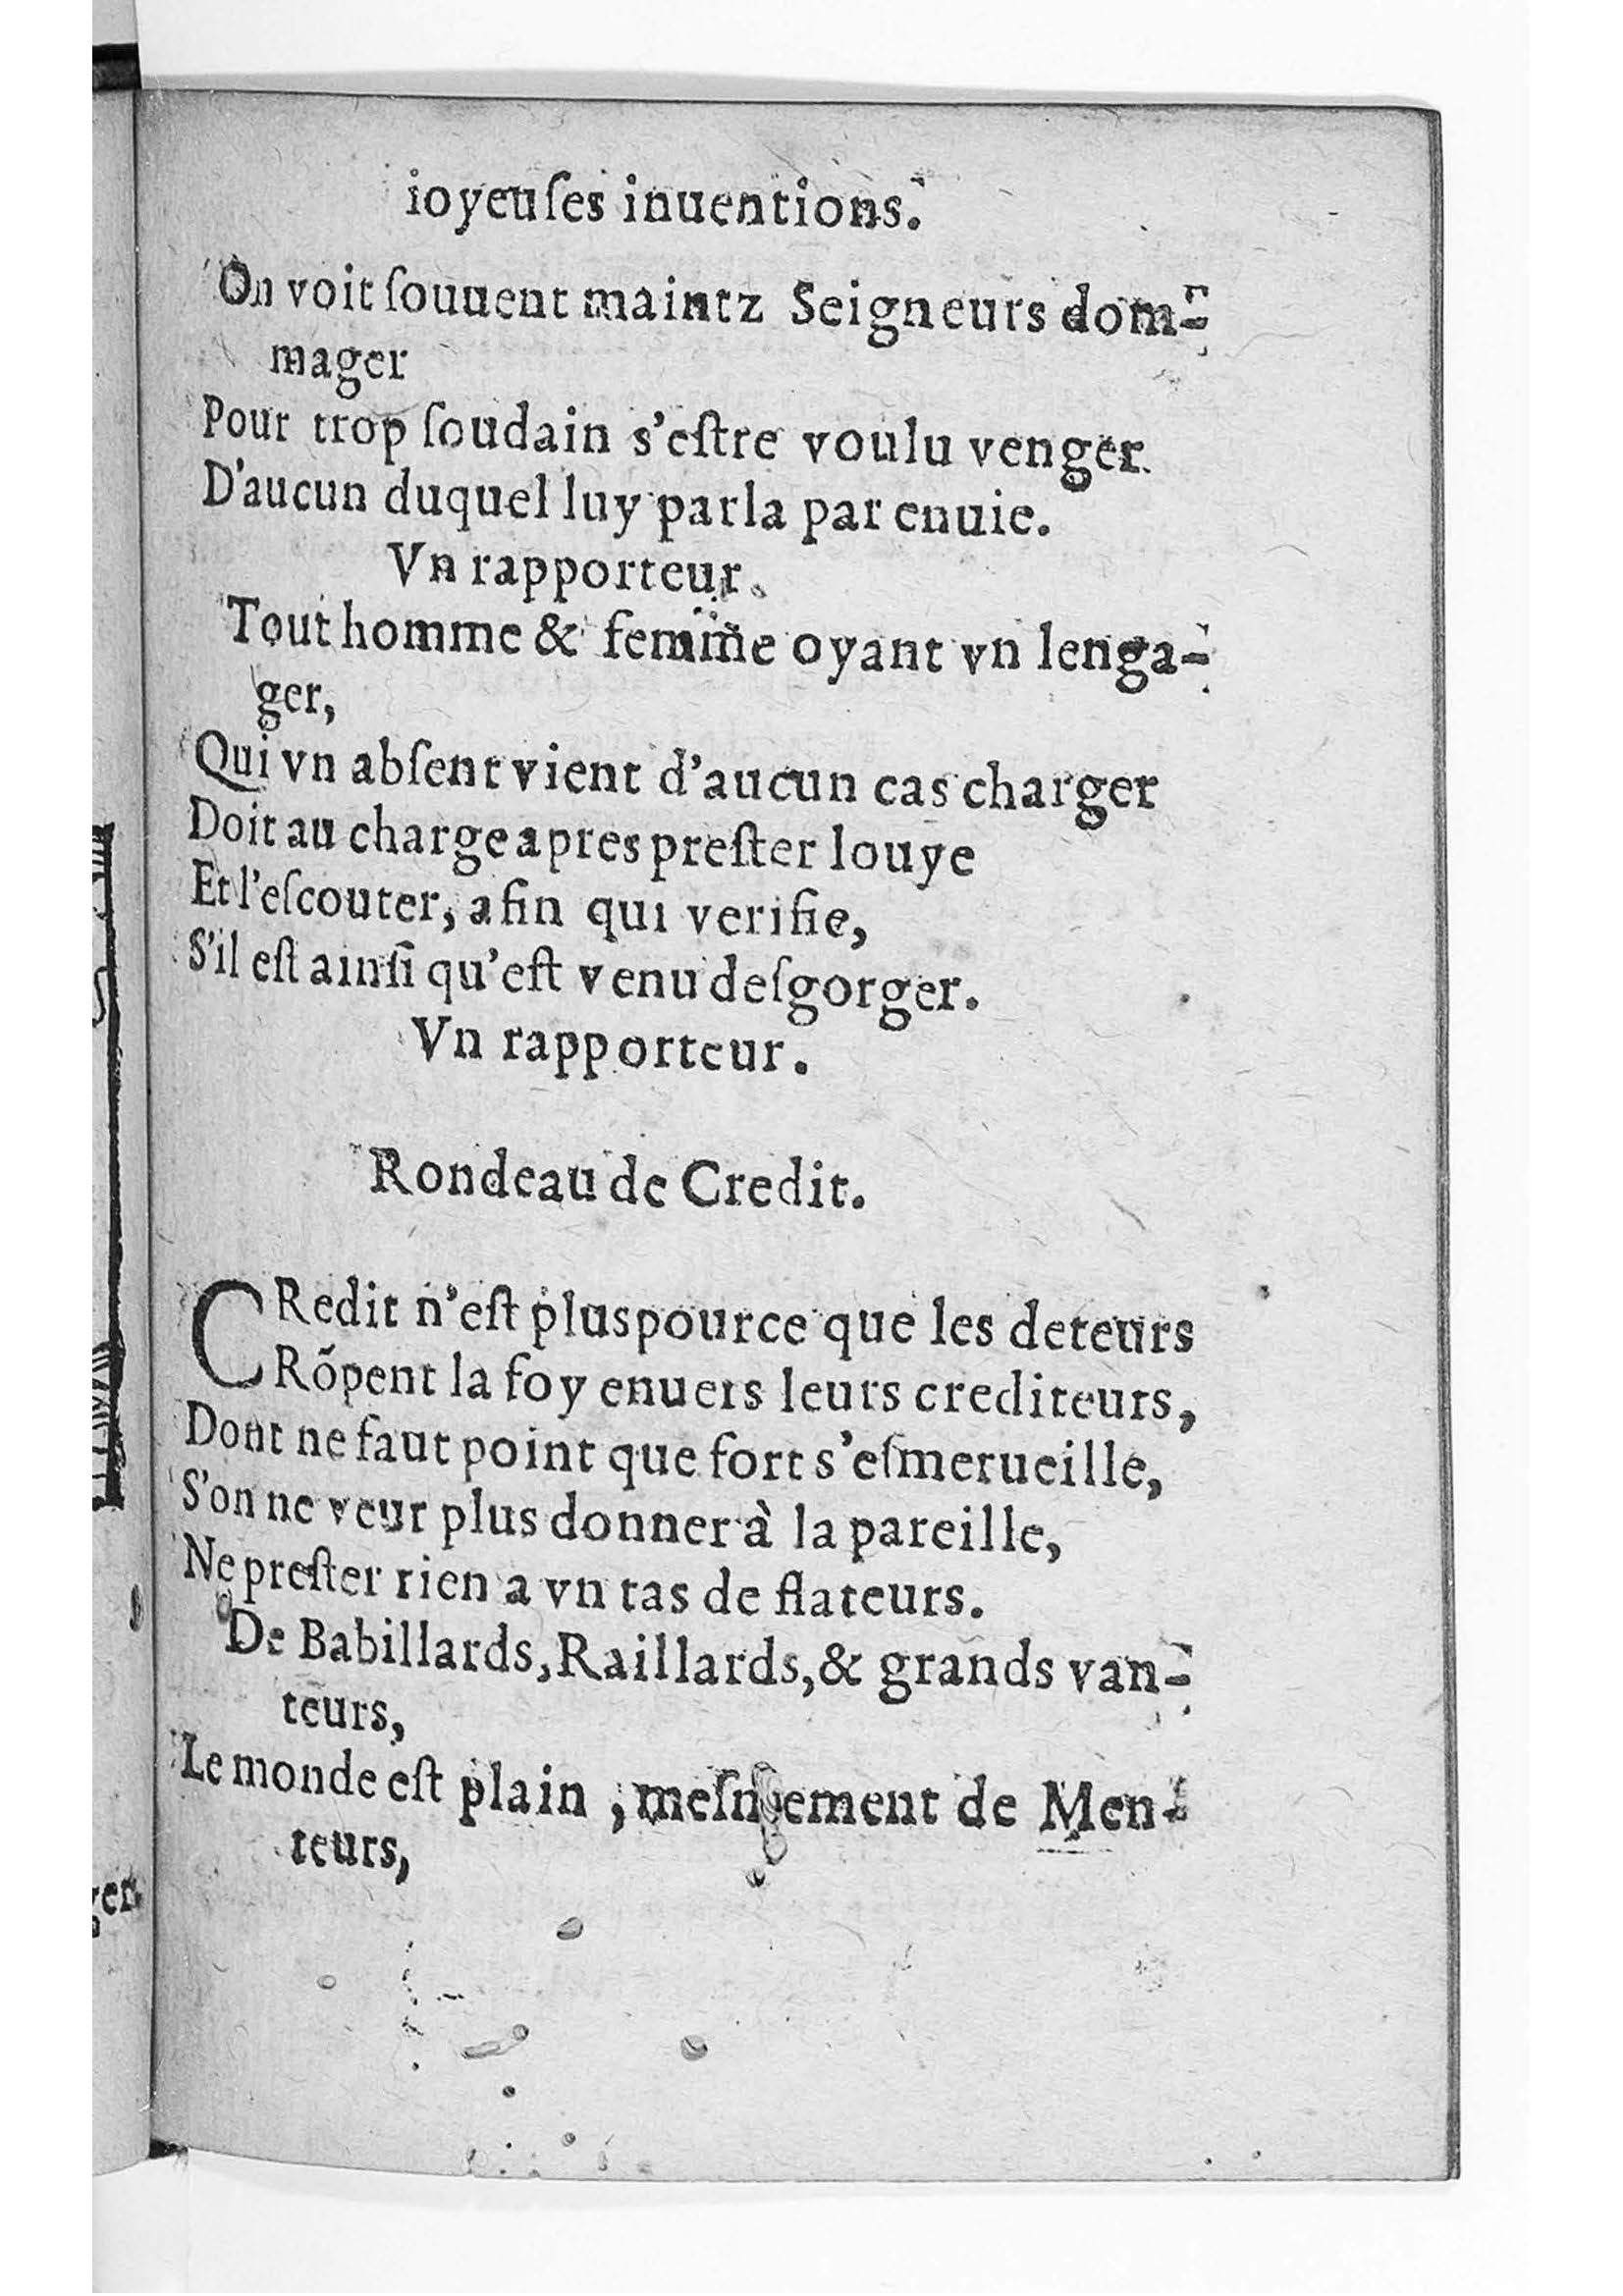 ioyeuſes inuentions.
On voit ſouuent maintz Seigneurs dom-
mager
Pour trop ſoudain s'eſtre voulu venger.
D'aucun duquel luy parla par enuie.
Vn rapporteur.
Tout homme & femme oyant vn lenga-
ger,
Qui vn abſent vient d'aucun cas charger
Doit au charge apres preſter louye
Et l'eſcouter, afin qui verifie,
S'il eſt ainſi qu'eſt venu deſgorger.
Vn rapporteur.
Rondeau de Credit.
CRedit n'eſt plus pource que les deteurs
Rõpent la foy enuers leurs crediteurs,
Dont ne faut point que fort s'eſmerueille,
S'on ne veur plus donner à la pareille,
Ne preſter rien a vn tas de flateurs.
De Babillards, Raillards, & grands van-
teurs,
Le monde eſt plain, meſmement de Men-
teurs,